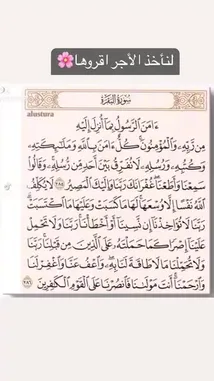 لنأخذ الأجر اقروها🌸
سُورَةُ البَقَرَةِ
alustura
ءَامَنَ الرَّسُولُ بِمَا أُنزِلَ إِلَيْهِ
مِن رَّبِّهِ وَالْمُؤْمِنُونَ كُلٌّ ءَامَنَ بِاللَّهِ وَمَلَٰٓئِكَتِهِ
وَكُتُبِهِ وَرُسُلِهِ لَا نُفَرِّقُ بَيْنَ أَحَدٍ مِّن رُّسُلِهِ وَقَالُوا
سَمِعْنَا وَأَطَعْنَا غُفْرَانَكَ رَبَّنَا وَإِلَيْكَ الْمَصِيرُ ٢٨٥ لَا يُكَلِّفُ
اللَّهُ نَفْسًا إِلَّا وُسْعَهَا لَهَا مَا كَسَبَتْ وَعَلَيْهَا مَا اكْتَسَبَتْ
رَبَّنَا لَا تُؤَاخِذْنَا إِن نَّسِينَا أَوْ أَخْطَأْنَا رَبَّنَا وَلَا تَحْمِلْ
عَلَيْنَا إِصْرًا كَمَا حَمَلْتَهُ عَلَى الَّذِينَ مِن قَبْلِنَا رَبَّنَا
وَلَا تُحَمِّلْنَا مَا لَا طَاقَةَ لَنَا بِهِ وَاعْفُ عَنَّا وَاغْفِرْ لَنَا
وَارْحَمْنَا أَنتَ مَوْلَىٰنَا فَانصُرْنَا عَلَى الْقَوْمِ الْكَٰفِرِينَ ٢٨٦